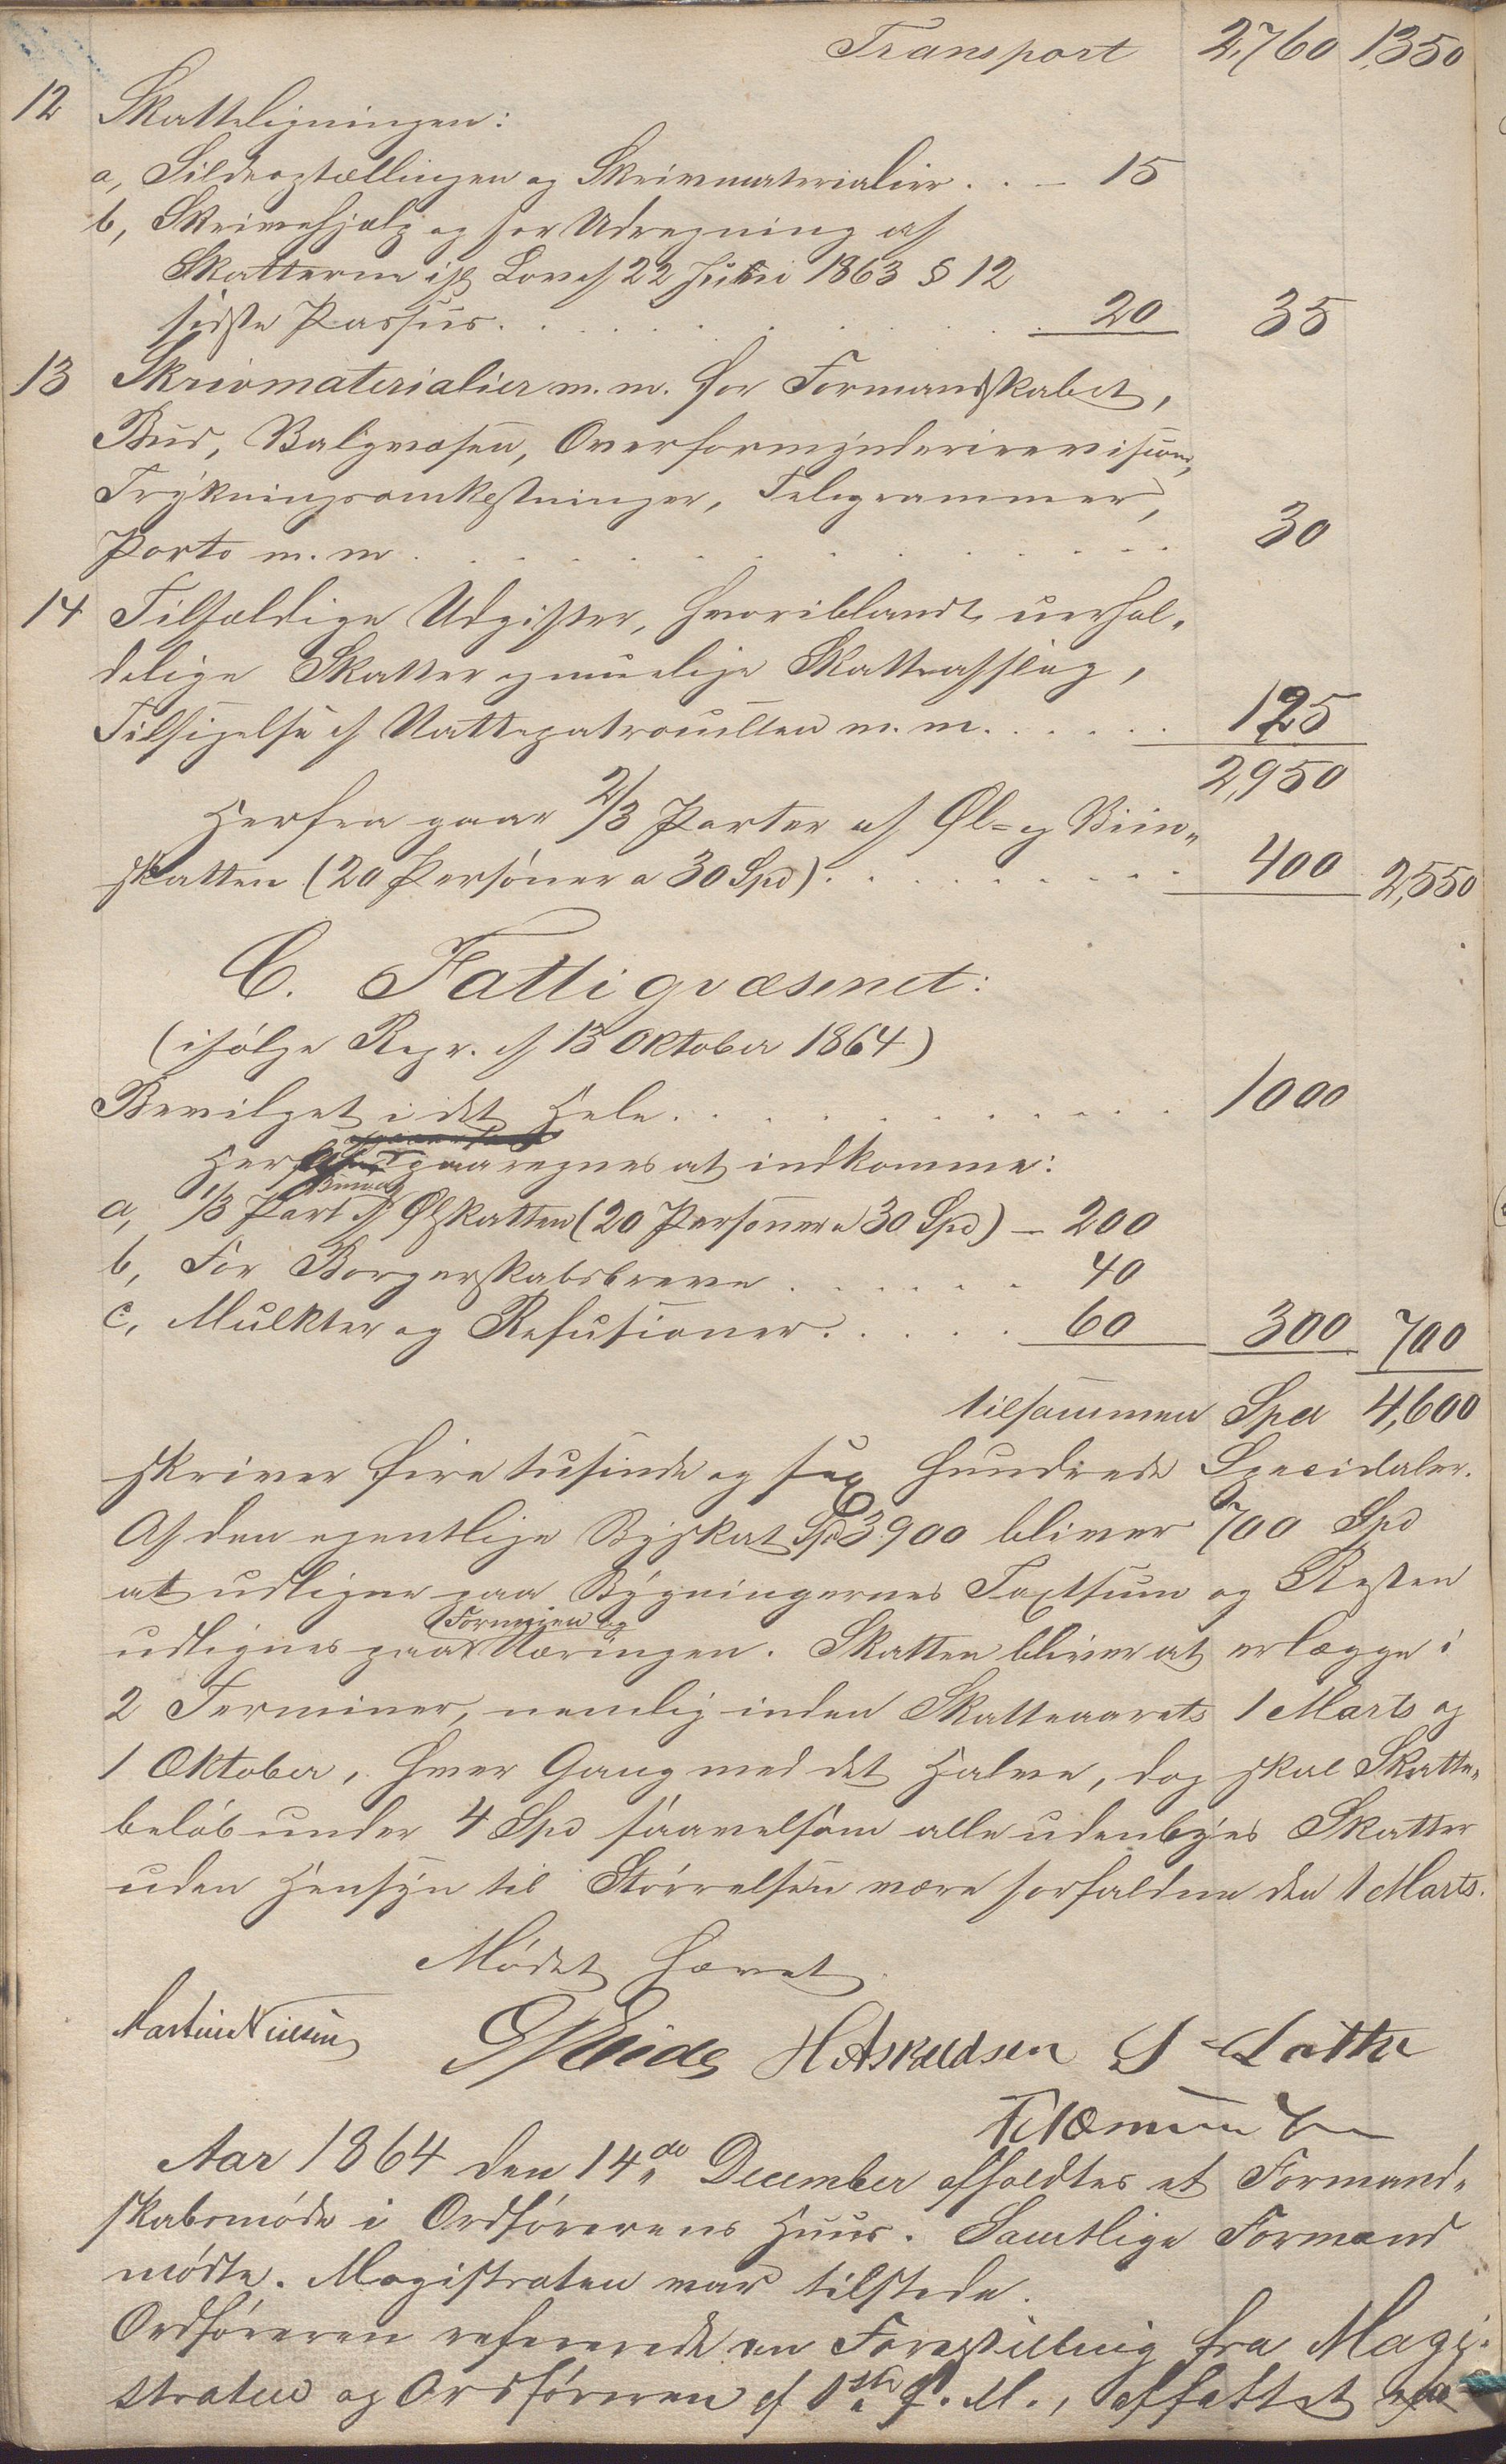 Transport 2,760 1,350
12 Skatteligningen:
a, Sildeoptællingen og Skrivmaterialier . . – 15
b, Skrivehjælp og for Udregning af
Skatterne ifl Lov af 22 Juni 1863 § 12
sidste Passus. . . . . . . . . . 20 35
13 Skrivmaterialier m.m. for Formandskabet,
Bud, Valgvæsen, Overformynderirevision,
Trykningsomkostninger, Telegrammer,
Porto m.m . . . . . . . . . . . 30
14 Tilfældige Udgifter, hvoriblandt uerhol-
delige Skatter og muelige Skatteafslag,
Tilsigelse af Nattepatrouillen m.m. . . . . . 125
2,950
Herfra gaar 2/3 Parter af Øl- og Viin-
skatten (20 Personer a 30 Spd) . . . . . . . . 400 2,550
C. Fattigvæsenet:
(ifølge Repr. af 13 Oktober 1864)
Bevilget i det Hele. . . . . . . . . . . 1000
Herpaa regnes at indkomme:
a, 1/3 Part af Ølskatten (20 Personer a 30 Spd) – 200
b, For Borgerskabsbreve . . . . . . 40
c, Mulkter og Refusioner. . . . . 60 300 700
tilsammen Spd 4,600
skriver fire tusinde og sex hundrede Specidaler.
Af den egentlige Byskat Spd 3900 bliver 700 Spd
at udligne paa Bygningernes Taxtsum og Resten
udlignes paa Formuen og Næringen. Skatten bliver at erlægge i
2 Terminer, nemlig inden Skatteaarets 1 Marts og
1 Oktober, hver Gang med det Halve, dog skal Skatte-
beløb under 4 Spd saavelsom alle udenbyes Skatter
uden Hensyn til Størrelsen være forfaldne den 1 Marts.
Mødet hævet
Martin Nielsen H Askildsen Lothe
Aar 1864 den 14de December afholdtes et Formand-
skabsmøde i Ordførerens Huus. Samtlige Formænd
mødte. Magistraten var tilstede.
Ordføreren refererede en Forestilling fra Magi-
straten og Ordføreren af 1ste d. M., affattet